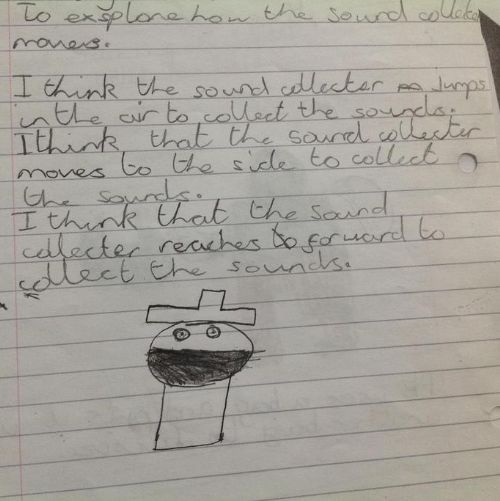 To exsplore how the sound collecter
movers.
I think the sound collecter jumps
in the air to collect the sounds.
I think that the sound collecter
moves to the side to collect
the sounds.
I think that the sound
collecter reaches to forward to
collect the sounds.